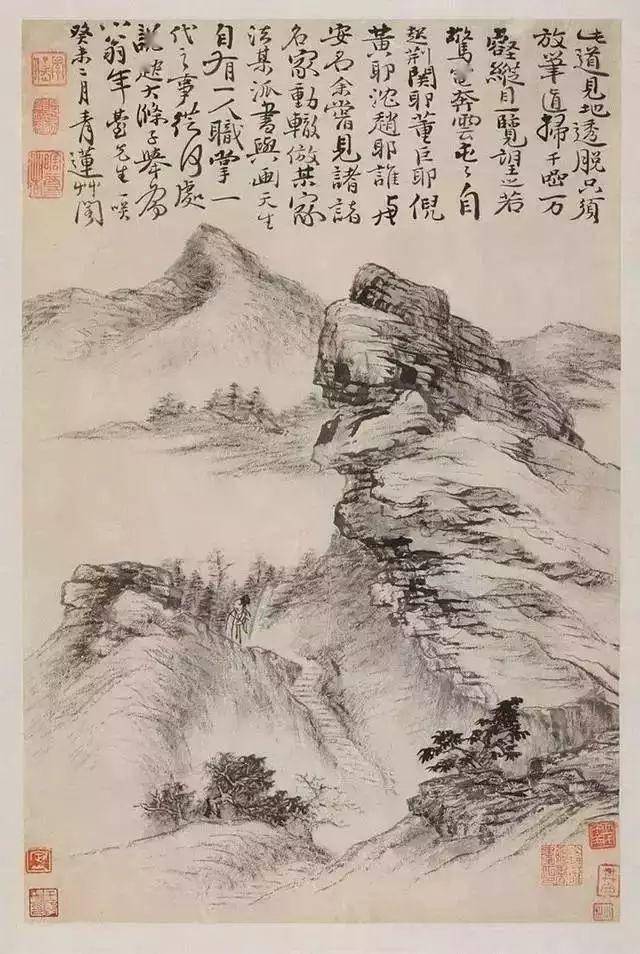 此道見地透脫只須
放筆直掃千嵒万
壑縱目一覽望之若
驚電奔雲屯々自
起荊関耶董巨耶倪
黃耶沈趙耶誰与
安名余嘗見諸諸
名家動轍倣某家
法某派書與画天生
自有一人職掌一
代之事從何處
說起大滌子舉為
小翁年臺先生一咲
癸未二月青蓮艸閣